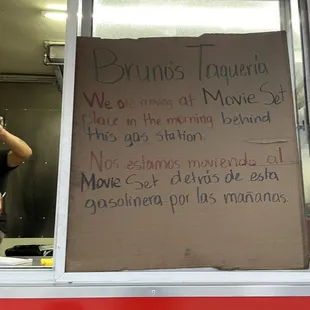 Bruno's Taqueria
We are moving at Movie Set
place in the morning behind
this gas station.
Nos estamos moviendo al
Movie Set detrás de esta
gasolinera por las mañanas.